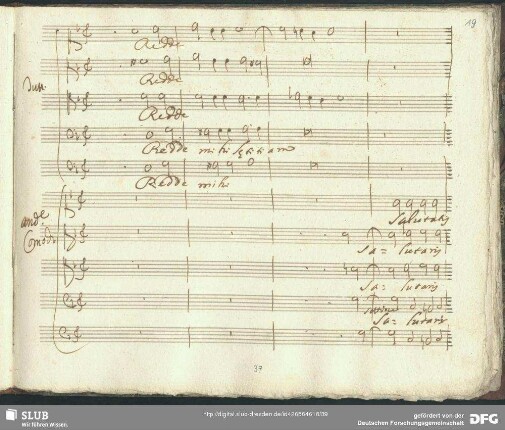 19
Redde
Redde
Redde
Redde mihi
Redde mihi
Salutaris
Sa= lutaris
Sa= lutaris
Sa= lutaris
37
SLUB
Wir führen Wissen.
http://digital.slub-dresden.de/id426564618/39
gefördert von der
Deutschen Forschungsgemeinschaft
DFG